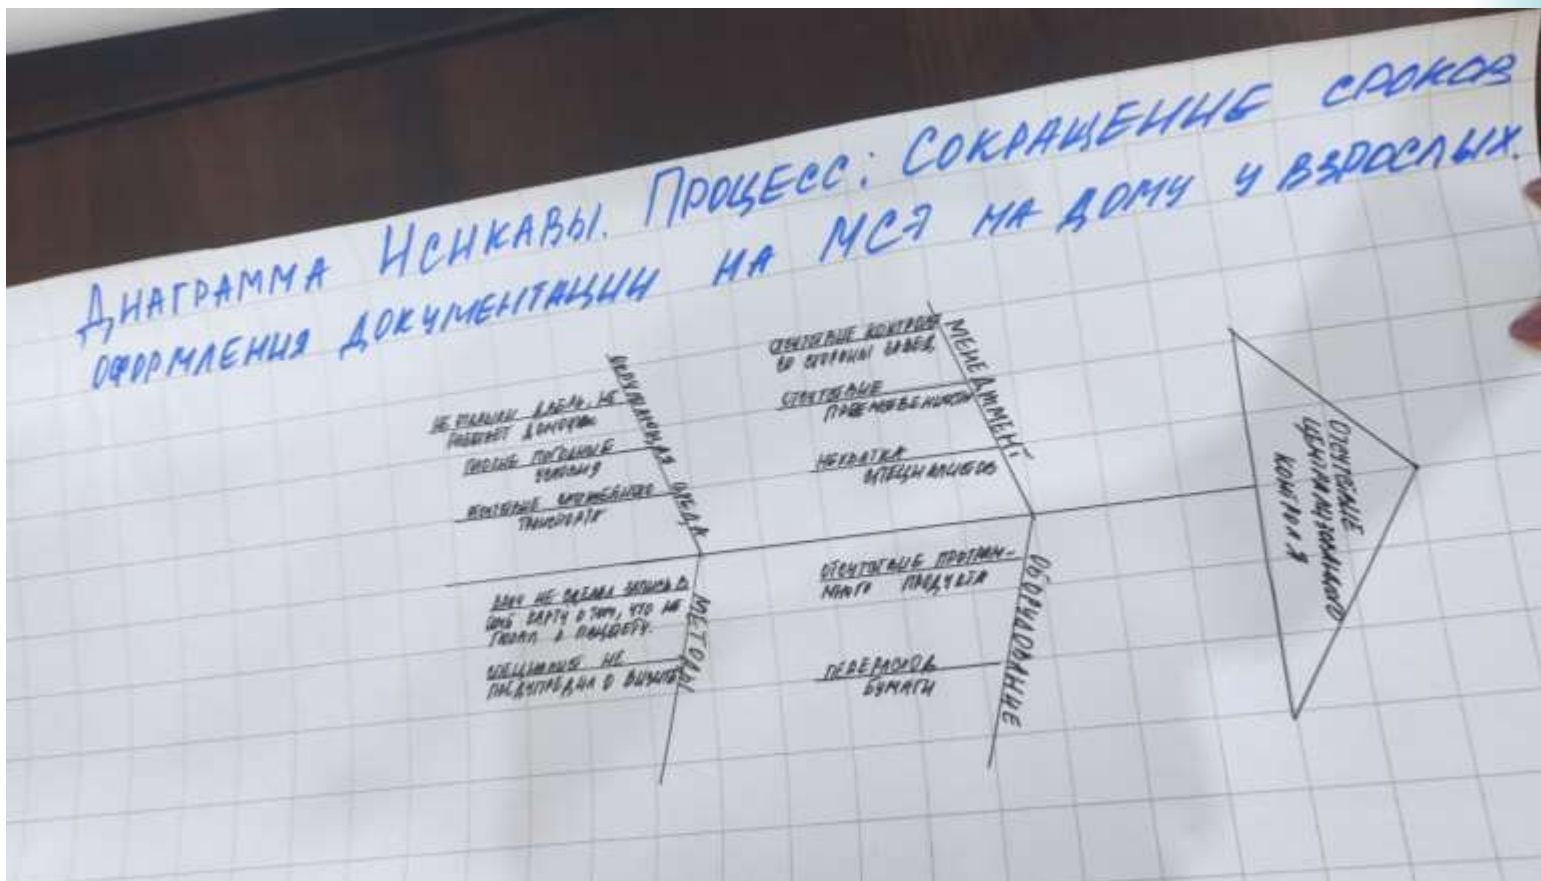 ДИАГРАММА ИСИКАВЫ. ПРОЦЕСС: СОКРАЩЕНИЕ СРОКОВ
ОФОРМЛЕНИЯ ДОКУМЕНТАЦИИ НА МСЭ НА ДОМУ У ВЗРОСЛЫХ.
ОКРУЖАЮЩАЯ СРЕДА
НЕ ДВЕРЬ, НЕ
РАБОТАЕТ ДОМОФОН
ПЛОХИЕ ПОГОДНЫЕ
УСЛОВИЯ
ОТСУТСТВИЕ СЛУЖЕБНОГО
ТРАНСПОРТА
МЕНЕДЖМЕНТ
ОТСУТСТВИЕ КОНТРОЛЯ
СО СТОРОНЫ ЗАВЕД.
ОТСУТСТВИЕ
ПРЕЕМСТВЕННОСТИ
НЕХВАТКА
СПЕЦИАЛИСТОВ
МЕТОДЫ
ВРАЧ НЕ СДЕЛАЛ ЗАПИСЬ В
КАРТУ О ТОМ, ЧТО НЕ
ПОПАЛ К ПАЦИЕНТУ.
СПЕЦИАЛИСТ НЕ
ПРЕДУПРЕДИЛ О ВИЗИТЕ
ОБОРУДОВАНИЕ
ОТСУТСТВИЕ ПРОГРАМ-
МНОГО ПРОДУКТА
ПЕРЕРАСХОД
БУМАГИ
ОТСУТСТВИЕ
ЦЕНТРАЛИЗОВАННОГО
КОНТРОЛЯ